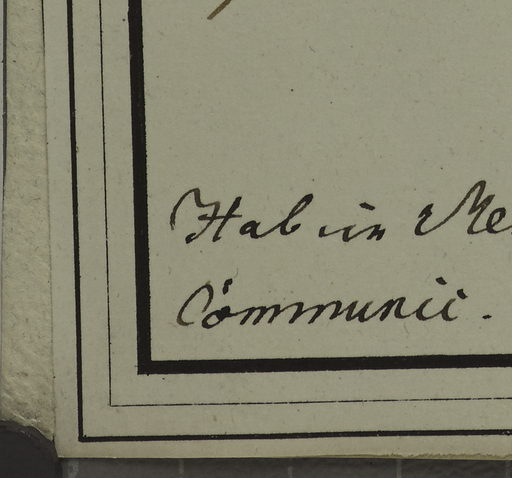 Hab in Me
Communic.